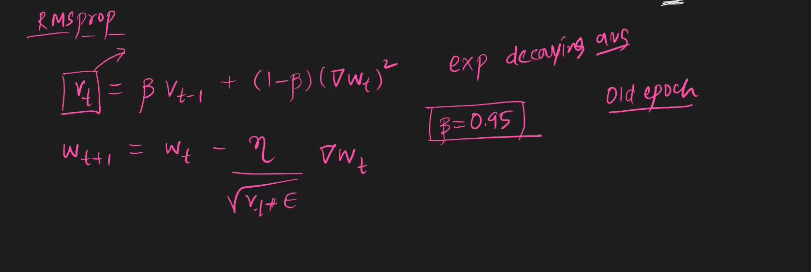 RMSprop
v_t = β v_{t-1} + (1-β)(∇w_t)²
exp decaying avg
old epoch
β=0.95
w_{t+1} = w_t - η / √(v_t + ε) ∇w_t